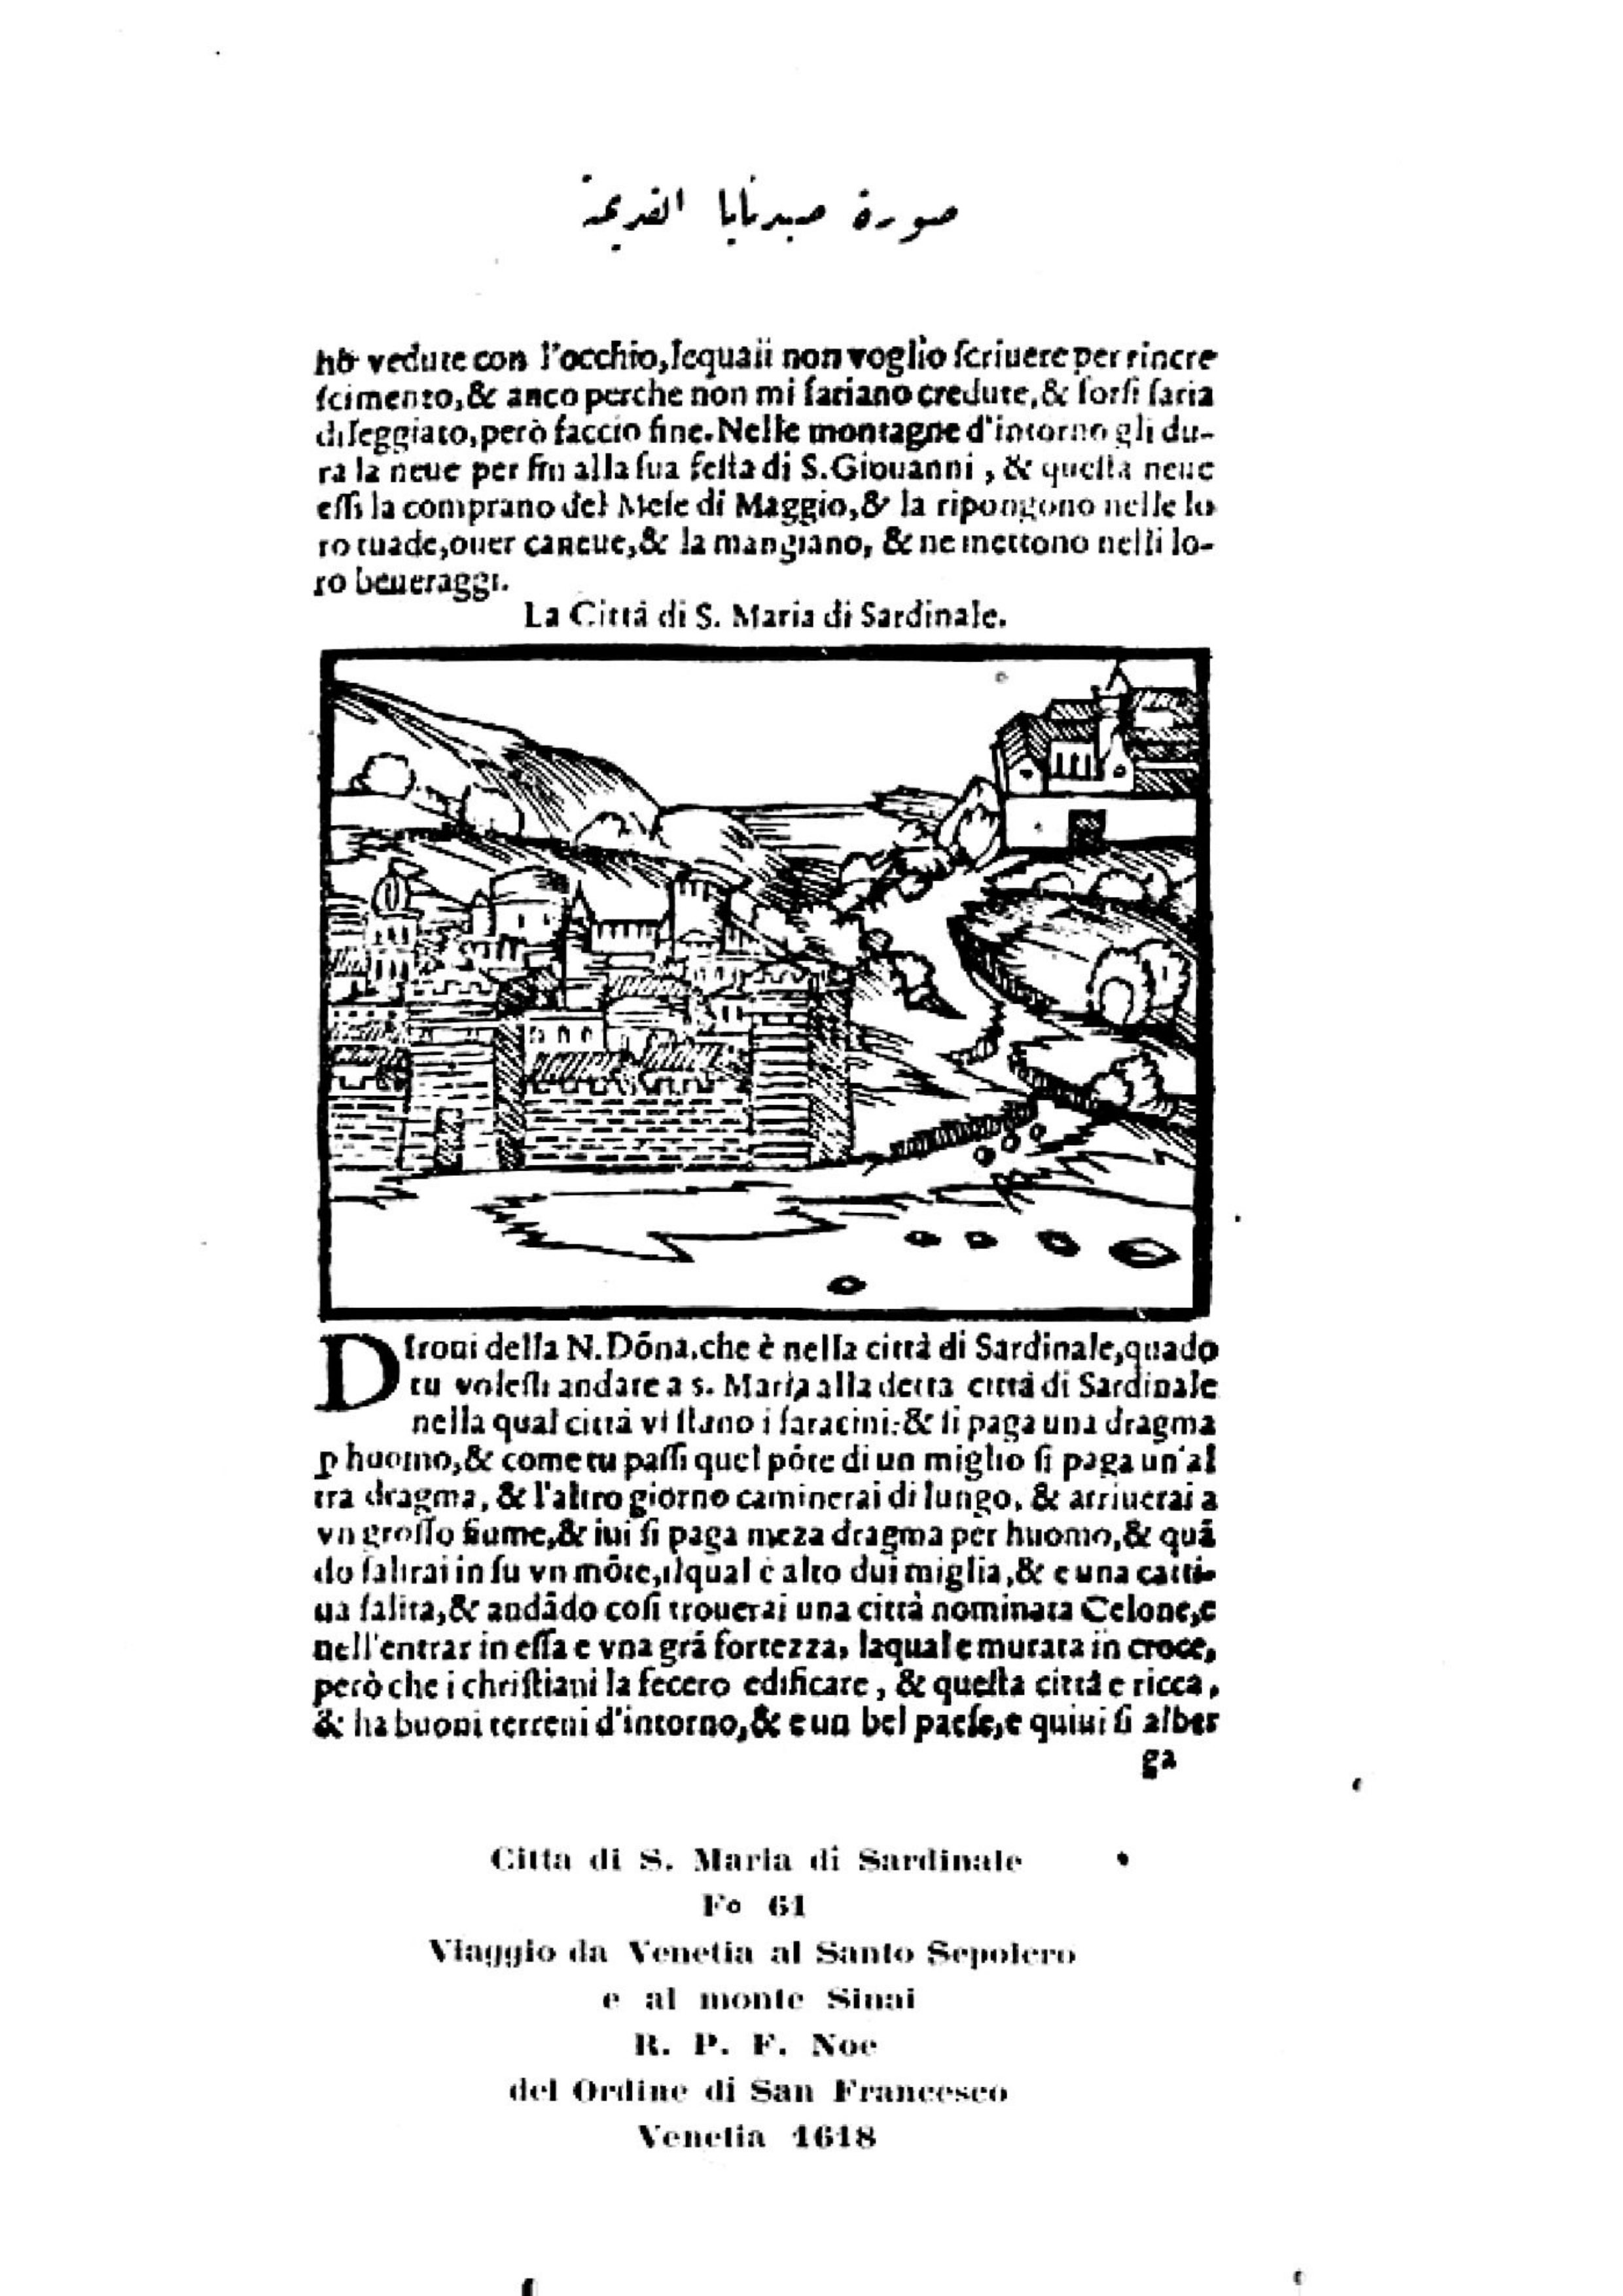 صورة صيدنايا القديمة
hò vedute con l'occhio, lequali non voglio ſcriuere per rincre
ſcimento, & anco perche non mi ſariano credute, & forſi ſaria
diſeggiato, però faccio fine. Nelle montagne d'intorno gli du-
ra la neue per fin alla ſua feſta di S. Giouanni, & queſta neue
eſſi la comprano del Meſe di Maggio, & la ripongono nelle lo
ro tuade, ouer caneue, & la mangiano, & ne mettono nelli lo-
ro beueraggi.
La Cittá di S. Maria di Sardinale.
Dſtroui della N. Dõna. che è nella città di Sardinale, quado
tu voleſti andare a s. Maria alla detta cittá di Sardinale
nella qual cittá vi ſtano i ſaracini: & ſi paga una dragma
p huomo, & come tu paſſi quel põte di un miglio ſi paga un'al
tra dragma, & l'altro giorno caminerai di lungo, & arriuerai a
vn groſſo fiume, & iui ſi paga meza dragma per huomo, & quã
do ſalirai in ſu vn mõte, ilqual è alto dui miglia, & e una catti-
ua ſalita, & andãdo coſi trouerai una città nominata Celone, e
nell'entrar in eſſa e vna grá fortezza, laqual e murata in croce,
però che i chriſtiani la fecero edificare, & queſta cittá e ricca,
& ha buoni terreni d'intorno, & e un bel paeſe, e quiui ſi alber
ga
Citta di S. Maria di Sardinale
Fo 61
Viaggio da Venetia al Santo Sepolcro
e al monte Sinai
R. P. F. Noe
del Ordine di San Francesco
Venetia 1618